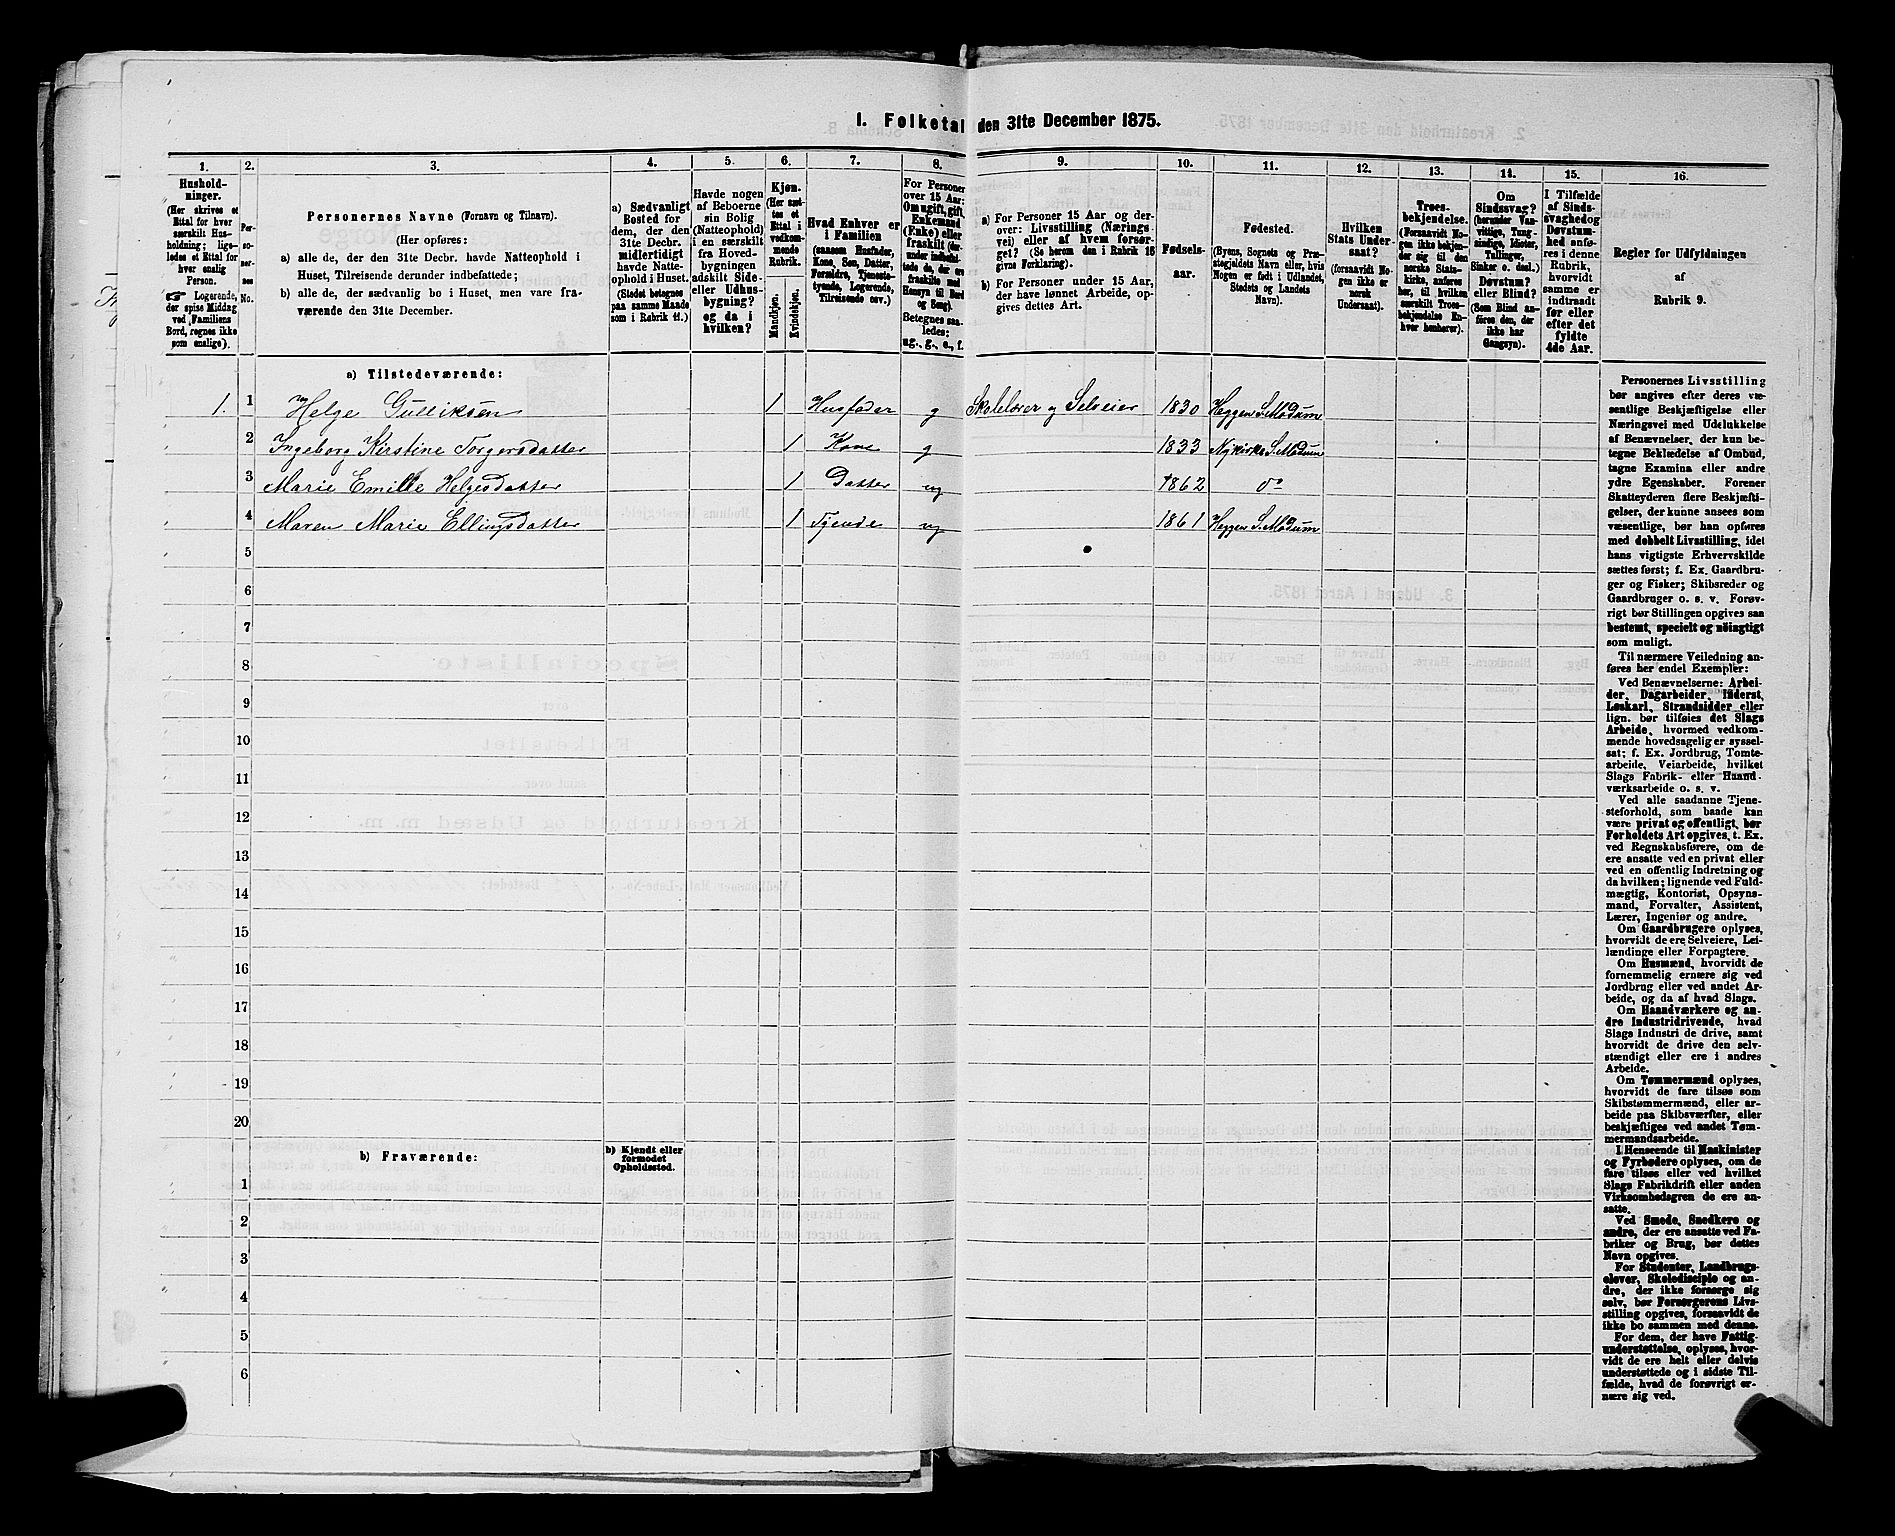 1. Folketal den 31te December 1875.
1. 2. 3. 4. 5. 6. 7. 8. 9. 10. 11. 12. 13. 14. 15. 16.
Hushold-
ninger.
(Her skrives et
Ettal for hver
særskilt Hus-
holdning; lige-
ledes et Ettal for
hver enslig
Person.
☞ Logerende,
der spise Middag
ved Familiens
Bord, regnes ikke
som enslige).
Per-
so-
ner-
nes
No.
Personernes Navne (Fornavn og Tilnavn).
(Her opføres:
a) alle de, der den 31te Decbr. havde Natteophold i
Huset, Tilreisende derunder indbefattede;
b) alle de, der sædvanlig bo i Huset, men vare fra-
værende den 31te December.
a) Sædvanligt
Bosted for
dem, der den
31te Decbr.
midlertidigt
havde Natte-
ophold i Huset.
(Stedet betegnes
paa samme Maade
som i Rubrik 11.)
Havde nogen
af Beboerne
sin Bolig
(Natteophold)
i en særskilt
fra Hoved-
bygningen
adskilt Side-
eller Udhus-
bygning?
og da i
hvilken?
Kjøn.
(Her sæt-
tes et
Ettal i
vedkom-
mende
Rubrik.
Mandkjøn.
Kvindekjøn.
Hvad Enhver er
i Familien
(saasom Husfader,
Kone, Søn, Datter,
Forældre, Tjeneste-
tyende, Logerende,
Tilreisende osv.)
For Personer
over 15 Aar:
Om ugift, gift,
Enkemand
(Enke) eller
fraskilt (der-
under indbefat-
tede de, der ere
fraskilte med
Hensyn til Bord
og Seng).
Betegnes saa-
ledes:
ug., g., e., f.
a) For Personer 15 Aar og der-
over: Livsstilling (Nærings-
vei) eller af hvem forsør-
get? (Se herom den i Rubrik 16
givne Forklaring).
b) For Personer under 15 Aar,
der have lønnet Arbeide, op-
gives dettes Art.
Fødsels-
aar.
Fødested.
(Byens, Sognets og Præ-
stegjeldets Navn eller, hvis
Nogen er født i Udlandet,
Stedets og Landets
Navn).
Hvilken
Stats Under-
saat?
(forsaavidt No-
gen ikke er
norsk
Undersaat).
Troes-
bekjendelse.
(Forsaavidt No-
gen ikke bekjen-
der sig til den
norske Stats-
kirke, anføres
her, til hvilken
særskilt Troes-
bekjendelse En-
hver henhører).
Om
Sindssvag?
(herunder Van-
vittige, Tung-
sindige, Idioter,
Tullinger,
Sinker o. desl.)
Døvstum?
eller Blind?
(Som Blind an-
føres den, der
ikke har
Gangsyn).
I Tilfælde
af Sinds-
svaghed og
Døvstum-
hed anfø-
res i denne
Rubrik,
hvorvidt
samme er
indtraadt
før eller
efter det
fyldte
4de Aar.
Regler for Udfyldningen
af
Rubrik 9.
a) Tilstedeværende:
1. 1 Helge Gulliksen 1 Husfader g Skolelærer og Selveier 1830 Heggen S. Modum
2 Ingeborg Kirstine Torgersdatter 1 Kone g 1833 Nykirke S. Modum
3 Marie Emilie Helgesdatter 1 Datter ug 1862 do
4 Maren Marie Ellingsdatter 1 Tyende ug 1861 Heggen S. Modum
5
6
7
8
9
10
11
12
13
14
15
16
17
18
19
20
b) Fraværende:
b) Kjendt eller
formodet
Opholdssted.
1
2
3
4
5
6
Personernes Livsstilling
bør angives efter deres væ-
sentlige Beskjæftigelse eller
Næringsvei med Udelukkelse
af Benævnelser, der kun be-
tegne Beklædelse af Ombud,
tagne Examina eller andre
ydre Egenskaber. Forener
Skatteyderen flere Beskjæfti-
gelser, der kunne ansees som
væsentlige, bør han opføres
med dobbelt Livsstilling, idet
hans vigtigste Erhvervskilde
sættes først; f. Ex. Gaardbru-
ger og Fisker; Skibsreder og
Gaardbruger o. s. v. Forøv-
rigt bør Stillingen opgives saa
bestemt, specielt og nøiagtigt
som muligt.
Til nærmere Veiledning an-
føres her endel Exempler:
Ved Benævnelserne: Arbei-
der, Dagarbeider, Inderst,
Løskarl, Strandsidder eller
lign. bør tilføies det Slags
Arbeide, hvormed vedkom-
mende hovedsagelig er syssel-
sat; f. Ex. Jordbrug, Tomte-
arbeide, Veiarbeide, hvilket
Slags Fabrik- eller Haand-
værksarbeide o. s. v.
Ved alle saadanne Tjene-
steforhold, som baade kan
være privat og offentligt, bør
Forholdets Art opgives, t. Ex.
ved Regnskabsførere, om de
ere ansatte ved en privat eller
ved en offentlig Indretning og
da hvilken; lignende ved Fuld-
mægtig, Kontorist, Opsyns-
mand, Forvalter, Assistent,
Lærer, Ingeniør og andre.
Om Gaardbrugere oplyses,
hvorvidt de ere Selveiere, Lei-
lændinge eller Forpagtere.
Om Husmænd, hvorvidt de
fornemmelig ernære sig ved
Jordbrug eller ved andet Ar-
beide, og da af hvad Slags.
Om Haandværkere og an-
dre Industridrivende, hvad
Slags Industri de drive, samt
hvorvidt de drive den selv-
stændigt eller ere i andres
Arbeide.
Om Tømmermænd oplyses,
hvorvidt de fare tilsøs som
Skibstømmermænd, eller ar-
beide paa Skibsværfter, eller
beskjæftiges ved andet Tøm-
mermandsarbeide.
I Henseende til Maskinister
og Fyrbødere oplyses, om de
fare tilsøs eller ved hvilket
Slags Fabrikdrift eller anden
Virksomhedsgren de ere an-
satte.
Ved Smede, Snedkere og
andre, der ere ansatte ved Fa-
briker og Brug, bør dettes
Navn opgives.
For Studenter, Landbrugs-
elever, Skoledisciple og an-
dre, der ikke forsørge sig
selv, bør Forsørgerens Livs-
stilling opgives, forsaavidt de
ikke bo sammen med denne.
For dem, der have Fattig-
understøttelse, oplyses, hvor-
vidt de ere helt eller delvis
understøttede og i sidste Til-
fælde, hvad de forøvrigt er-
nære sig ved.